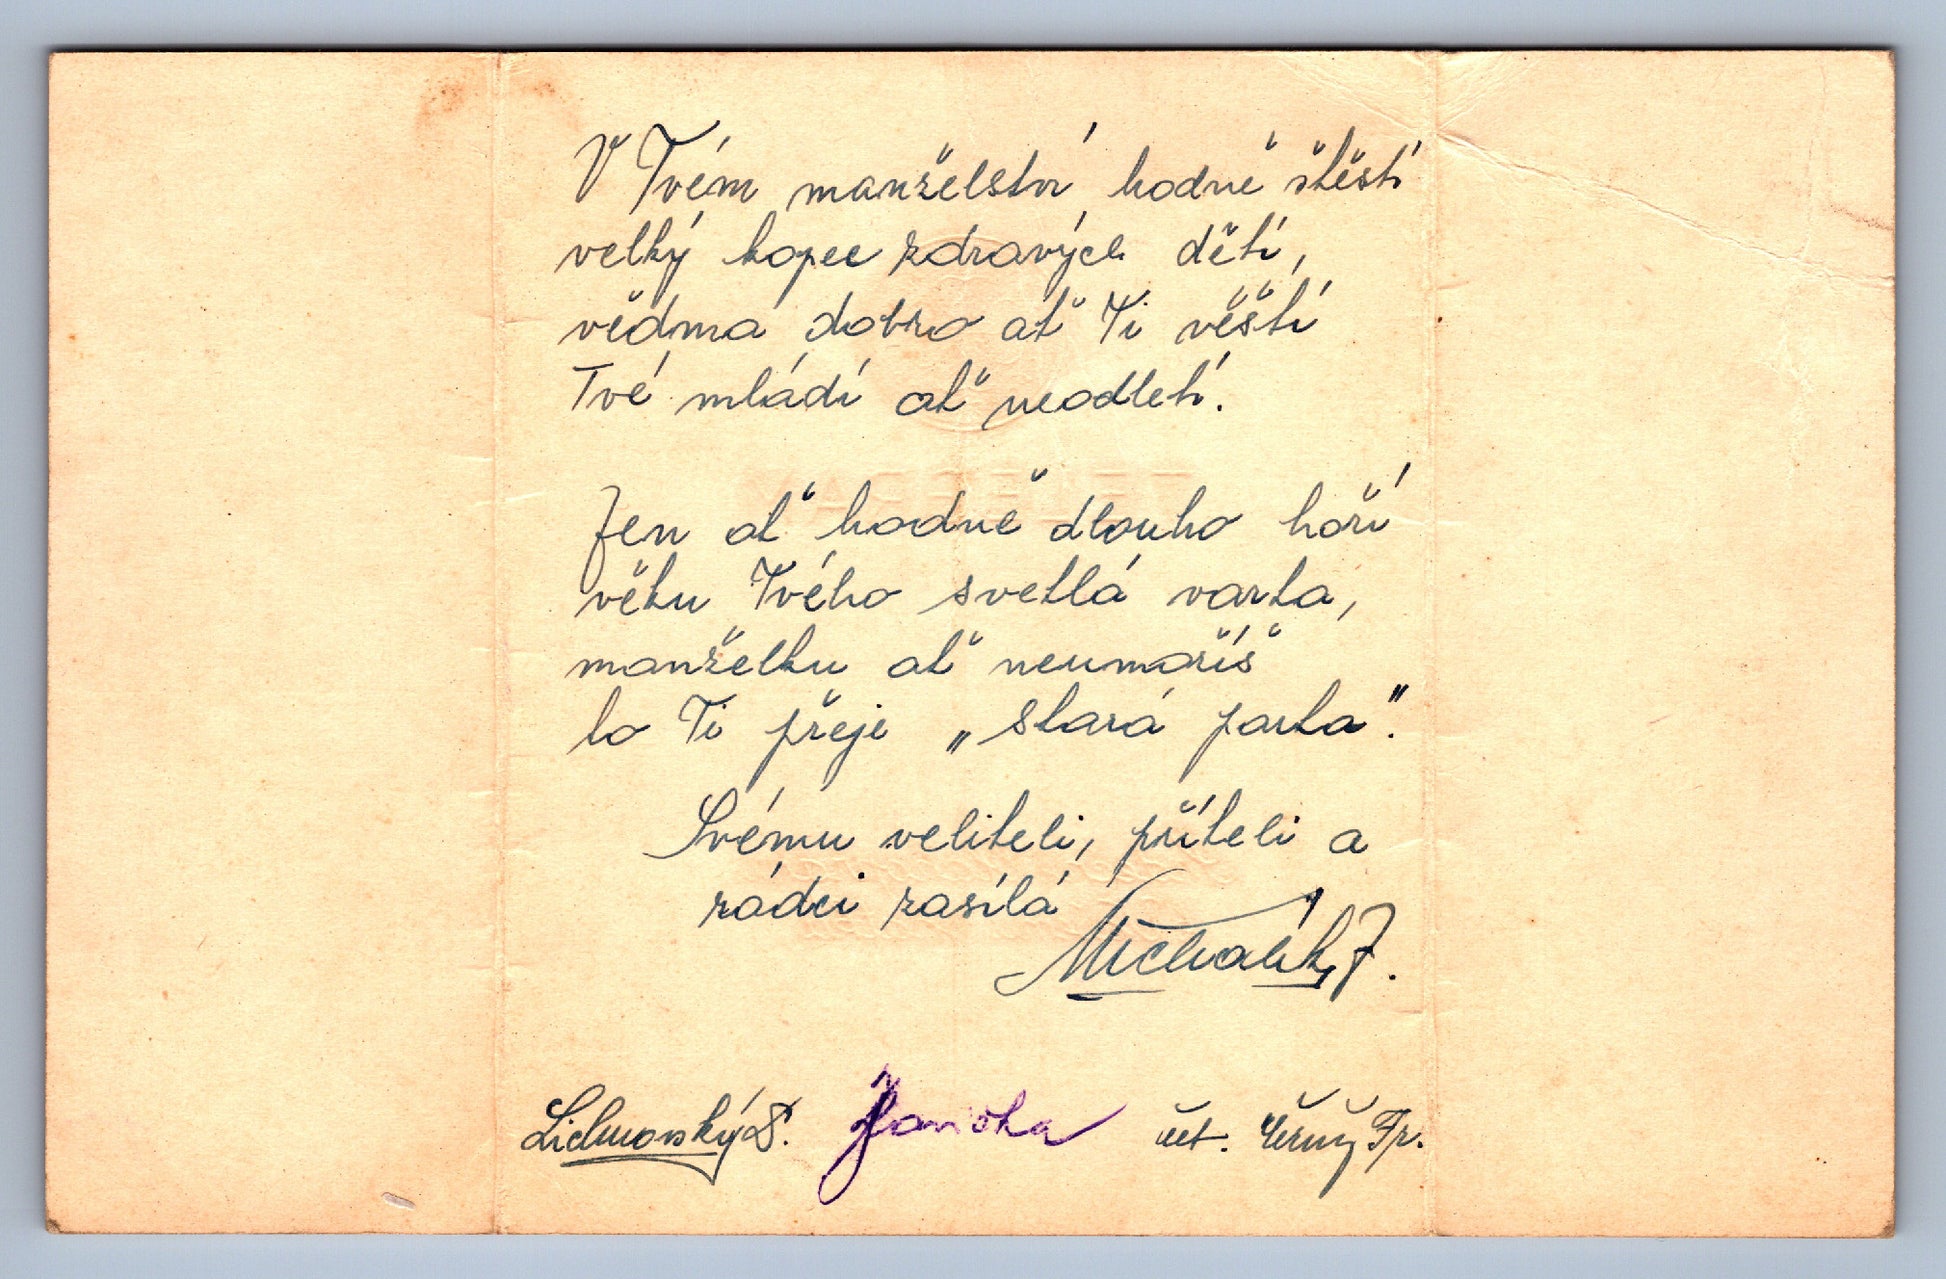 V Tvém manželství hodně štěstí
velký kopec zdravých dětí,
vědma dobro ať Ti věští
Tvé mládí ať neodletí.
Jen ať hodně dlouho hoří
věku Tvého svetlá varta,
manželku ať neumoříš
to Ti přeje „stará parta".
Svému veliteli, příteli a
rádci zasílá
Michalík J.
Lichnovský S. čet. Černý Fr.